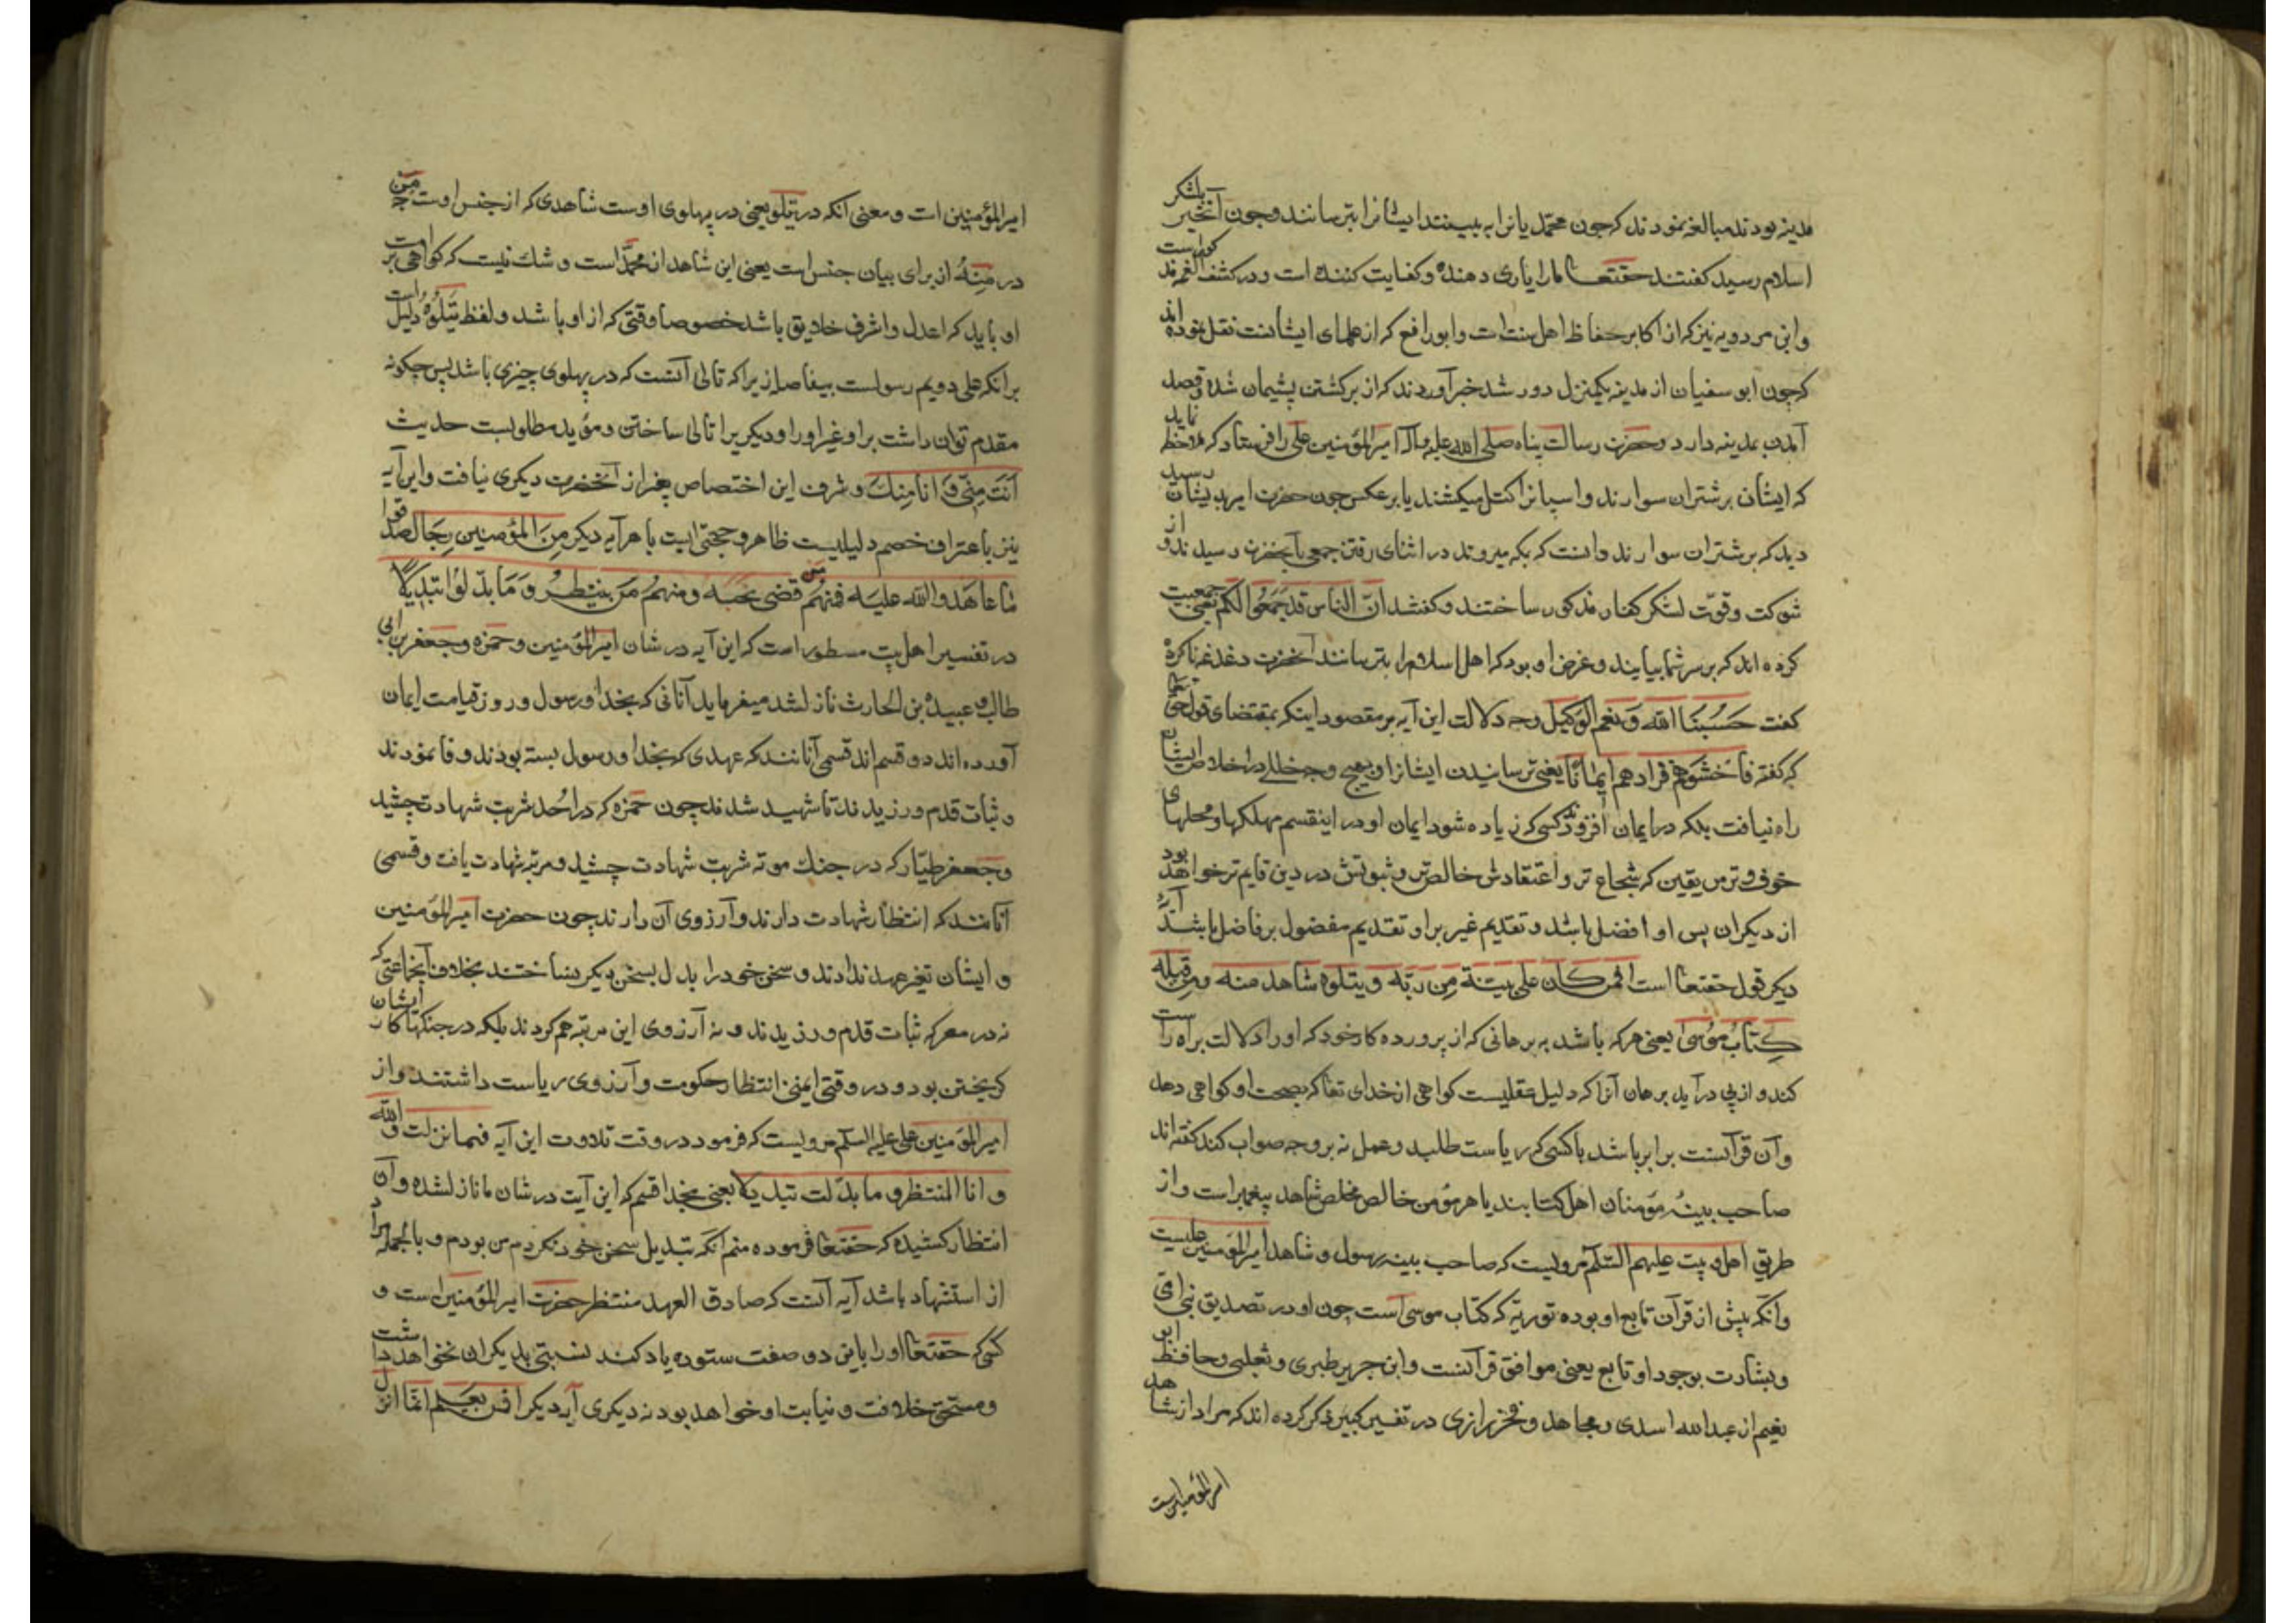 مدینه بودند مبالغه نمودند که چون محمد یا نرا به بینند ایشانرا بترسانند و چون آنخبر بلشکر
اسلام رسید کفتند حقتعا مارا یاری دهنده و کفایت کننده است و در کشف الغمه مذکوراست
و ابن مردویه نیز که از اکابر حفاظ اهل سنت است و ابورافع که از علمای ایشانست نقل نموده اند
که چون ابوسفیان از مدینه یکمنزل دور شد خبر آوردند که از برکشتن پشیمان شده و قصد
آمدن بمدینه دارد و حضرت رسالت پناه صلی الله علیه وآله امیرالمؤمنین علی را فرستاد که ملاحظه نماید
که ایشان بر شتران سوارند و اسپانرا کتل میکشند یا بر عکس چون حضرت امیر بدیشان رسید
دید که بر شتران سوارند دانست که بمکه میروند در اثنای رفتن جمعی بآنحضرت رسیدند و از
شوکت و قوت لشکر کفار مذکور ساختند و کفتند ان الناس قد جمعوا لکم یعنی جمعیت
کرده اند که بر سر شما بیایند و غرض او بود که اهل اسلام را بترسانند آنحضرت دغدغه ناکرده
کفت حسبنا الله و نعم الوکیل وجه دلالت این آیه بر مقصود اینکه بمقتضای قول حق تعا
که کفته فاخشوهم فزادهم ایمانا یعنی ترسانیدن ایشانرا بهیچ وجه خللی در اخلاص ایشان
راه نیافت بلکه در ایمان افزود کسی که زیاده شود ایمان او در اینقسم مهلکها و محلهای
خوف و ترس یقین که شجاع تر و اعتقادش خالص تر و ثبوتش در دین قایم تر خواهد بود
از دیکران پس او افضل باشد و تقدیم غیر بر او تقدیم مفضول بر فاضل باشد آیهٔ
دیکر قول حقتعا است افمن کان علی بینة من ربه و یتلوه شاهد منه ومن قبله
کتاب موسی یعنی هر که باشد به برهانی که از پرورده کار خود که او را دلالت براه راست
کند و از پی در آید برهان آنرا که دلیل عقلیست کواهی از خدای تعا که بصحت او کواهی دهد
و آن قرآنست برابر باشد با کسی که ریاست طلبد و عمل نه بر وجه صواب کند کفته اند
صاحب بینه مؤمنان اهل کتابند یا هر مؤمن خالص مخلص شاهد پیغمبر است و از
طریق اهل بیت علیهم السلام مرویست که صاحب بینه رسول و شاهد امیرالمؤمنین علیست
و انکه پیش از قرآن تابع او بوده توریة که کتاب موسی است چون او در تصدیق نبی امی
و بشارت بوجود او تابع یعنی موافق قرآنست و ابن جریر طبری و ثعلبی و حافظ ابو
نعیم از عبدالله اسدی و مجاهد و فخر رازی در تفسیر کبیر ذکر کرده اند که مراد از شاهد
امیرالمؤمنین است
امیرالمؤمنین است و معنی انکه در یتلو یعنی در پهلوی اوست شاهدی که از جنس اوست چه من
در منه از برای بیان جنس است یعنی این شاهد از محمد است و شک نیست که کواهی بر امت
او باید که اعدل و اشرف خلایق باشد خصوصا وقتی که از او باشد و لفظ یتلوه دلیل است
بر انکه علی دویم رسولست بیفاصله زیرا که تالی آنست که در پهلوی چیزی باشد پس چکونه
مقدم توان داشت بر او غیر او را و دیکریرا تالی ساختن و مؤید مطلوبست حدیث
انت منی و انا منک و شرف این اختصاص بغیر از آنحضرت دیکری نیافت و این آیه
نیز باعتراف خصم دلیلیست ظاهر و حجتی است باهر آیه دیکر من المؤمنین رجال صدقوا
ما عاهدوا الله علیه فمنهم من قضی نحبه ومنهم من ینتظر و ما بدلوا تبدیلا
در تفسیر اهل بیت مسطور است که این آیه در شان امیرالمؤمنین و حمزه و جعفر بن ابی
طالب و عبیدة بن الحارث نازل شد میفرماید آنانی که بخدا و رسول و روز قیامت ایمان
آورده اند دو قسم اند قسمی آنانند که عهدی که بخدا و رسول بسته بودند وفا نمودند
و ثبات قدم ورزیدند تا شهید شدند چون حمزه که در احد شربت شهادت چشید
و جعفر طیار که در جنک موته شربت شهادت چشید و مرتبه شهادت یافت و قسمی
آنانند که انتظار شهادت دارند و آرزوی آن دارند چون حضرت امیرالمؤمنین
و ایشان تغیر عهد ندادند و سخن خود را بدل بسخن دیکر نساختند بخلاف آنجماعتی که
نه در معرکه ثبات قدم ورزیدند و نه آرزوی این مرتبه هم کردند بلکه در جنکها کار ایشان
کریختن بود و در وقتی ایمنی انتظار حکومت و آرزوی ریاست داشتند و از
امیرالمؤمنین علی علیه السلام مرویست که فرمود در وقت تلاوت این آیه فینا نزلت والله
و انا المنتظر و ما بدلت تبدیلا یعنی بخدا قسم که این آیت در شان ما نازلشده و آن
انتظار کشیده که حقتعا فرموده منم انکه تبدیل سخن خود نکردم من بودم و بالجمله مراد
از استشهاد باشد آیه آنست که صادق العهد منتظر حضرت امیرالمؤمنین است و
کسی که حقتعا او را باین دو صفت ستوده یاد کند نسبتی بدیکران نخواهد داشت
و مستحق خلافت و نیابت او خواهد بود نه دیکری آیه دیکر افمن یعلم انما انزل